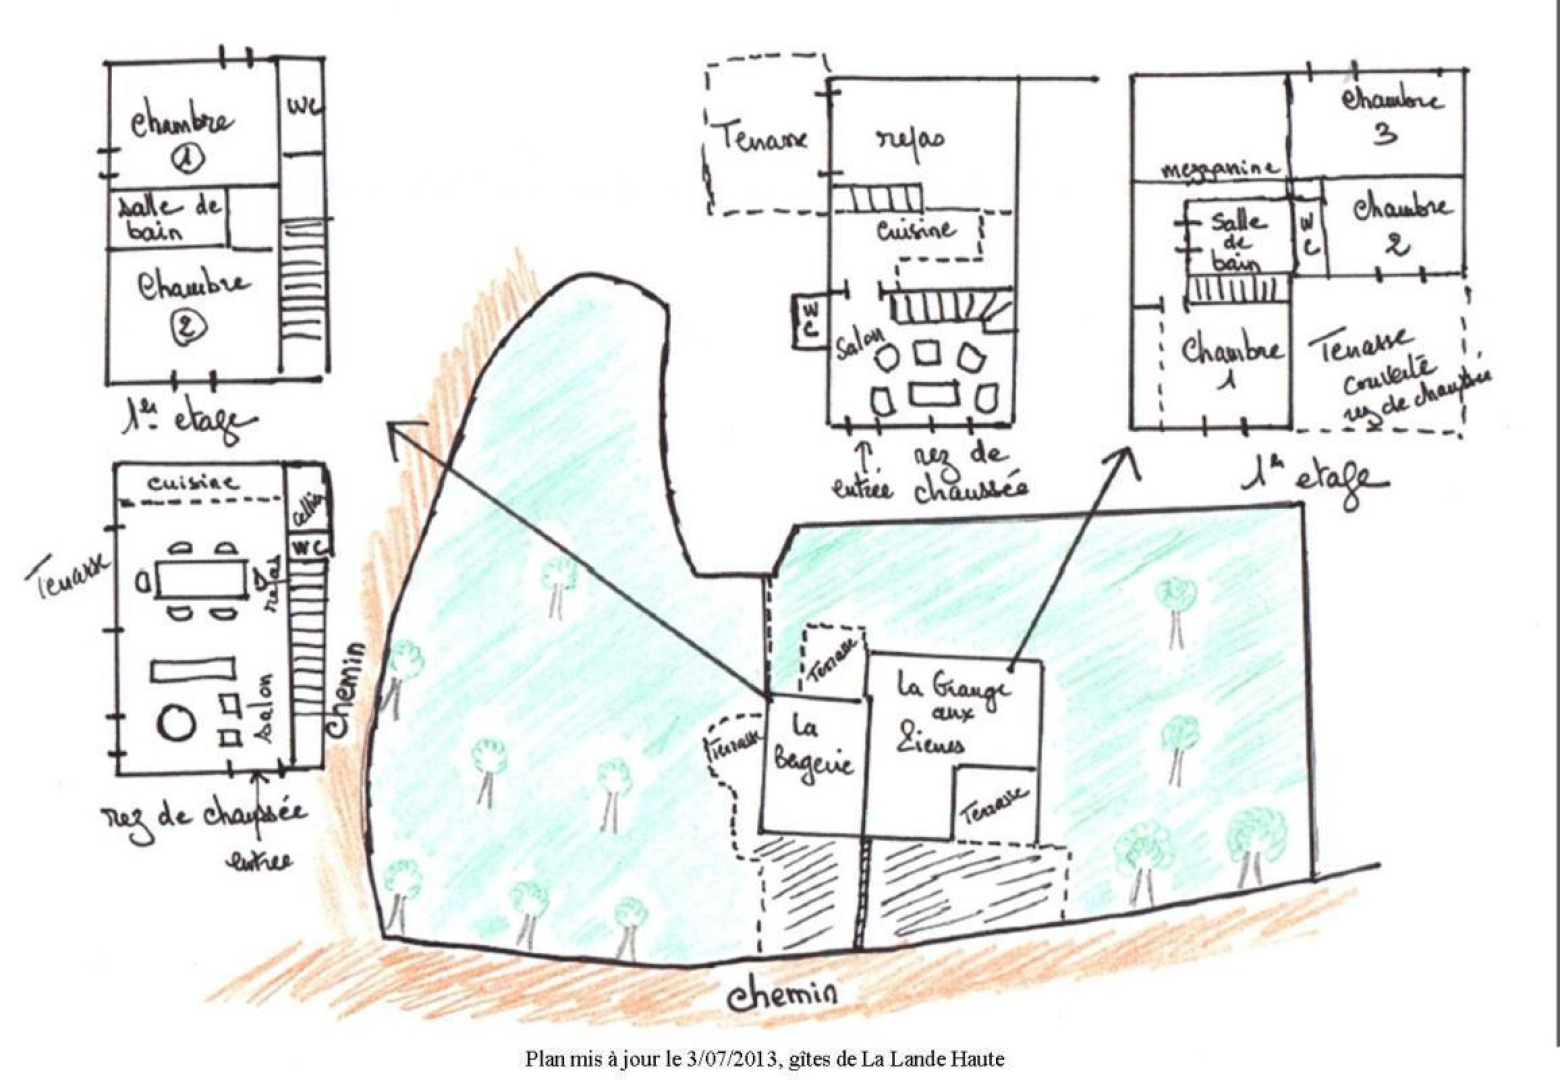 Chambre
1
WC
salle de
bain
Chambre
2
1er etage
cuisine
cellier
WC
Terrasse
repas
salon
rez de chaussée
entree
Chemin
Terrasse
repas
cuisine
WC
salon
entrée
rez de
chaussée
Chambre
3
mezzanine
Salle
de
bain
WC
Chambre
2
Chambre
1
Terrasse
couverte
rez de chaussée
1er etage
Terrasse
La Grange
aux
Terrasse
La
Bergerie
Terrasse
Chemin
Plan mis à jour le 3/07/2013, gîtes de La Lande Haute